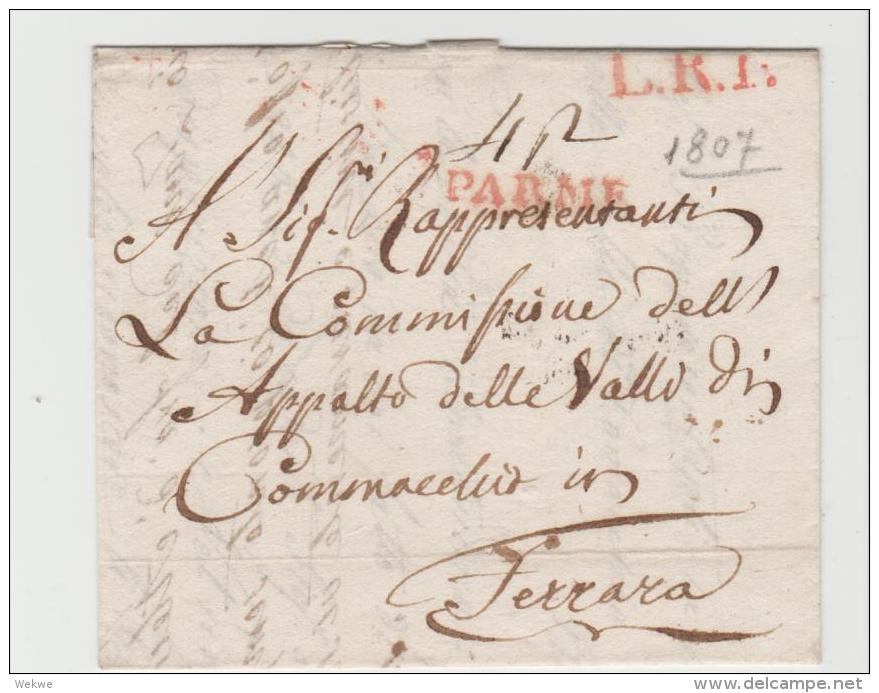 L.R.I.
1807
PARME
A Sig.ri Rappresentanti
La Commissione dell
Appalto delle Valli di
Commacchio in
Ferrara
Wekwe
delcampe.net